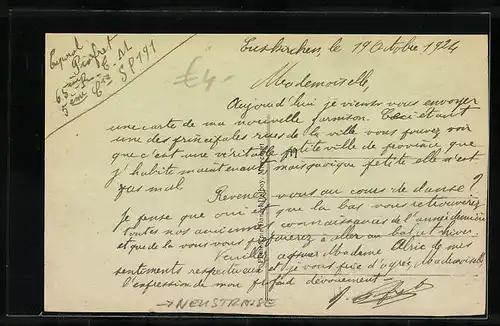 Caporal
65ème
5ème Cie SP191
£4-
Euskirchen, le 19 Octobre 1924
Mademoiselle,
Aujourd'hui je viens vous envoyer
une carte de ma nouvelle garnison. Ceci étant
une des principales rues de la ville vous pouvez voir
que c'est une véritable petite ville de province que
j'habite maintenant mais quoique petite elle n'est
pas mal
Revenez vous au cours de danse?
Je pense que oui et que la bas vous retrouverez
toutes nos anciennes connaissances de l'année dernière
et que de la vous vous préparerez à aller au bal cet hiver.
Veuillez assurer Madame de mes
sentiments respectueux et je vous prie d'agréer, Mademoiselle,
l'expression de mon profond dévouement.
→ NEUSTRASSE